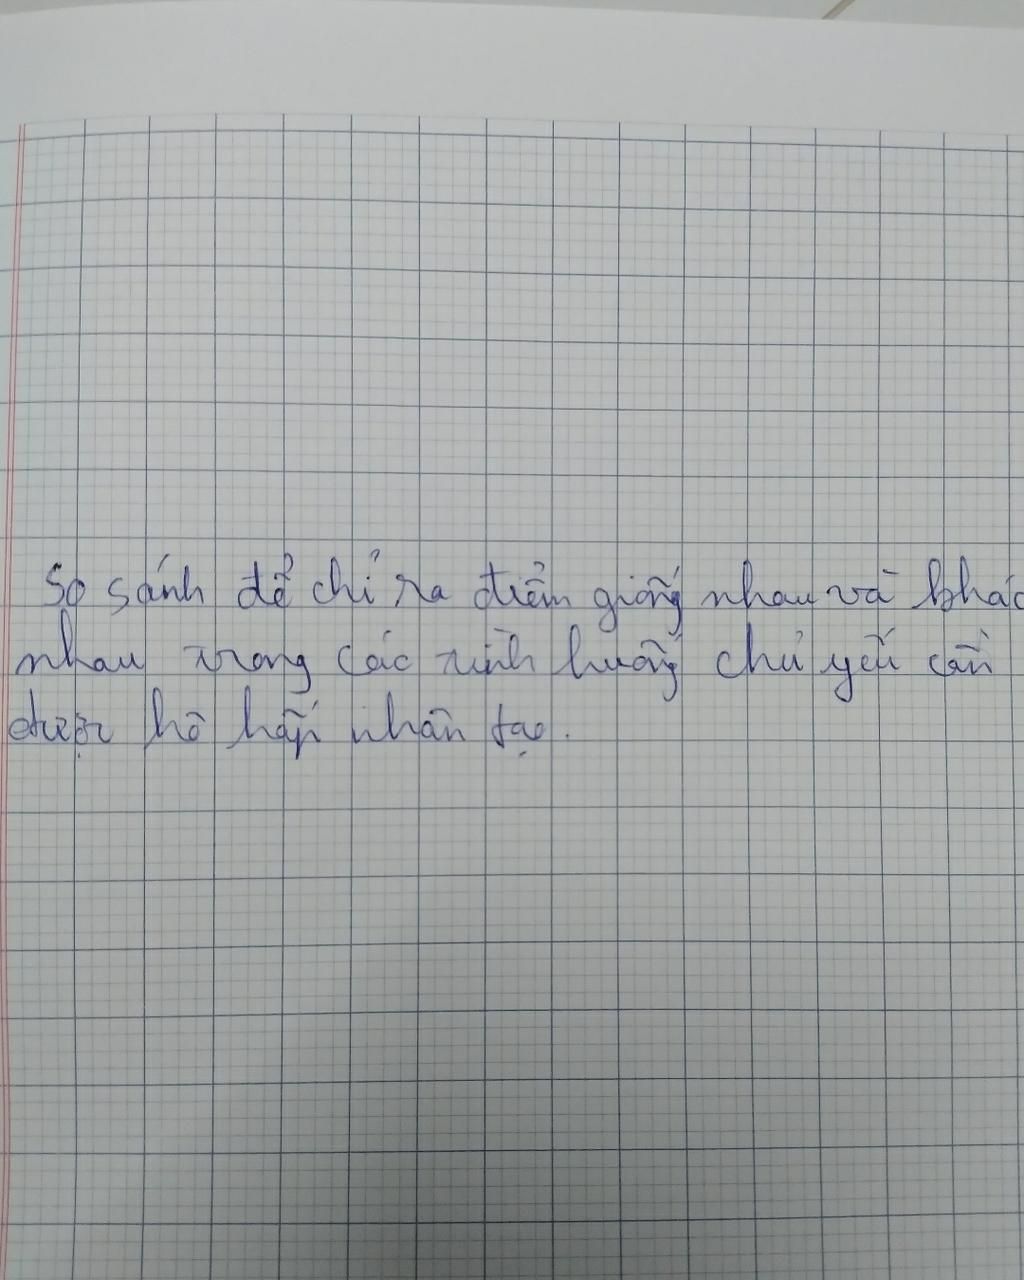 So sánh để chỉ ra điểm giống nhau và khác
nhau trong các tình huống chủ yếu cần
được hô hấp nhân tạo.